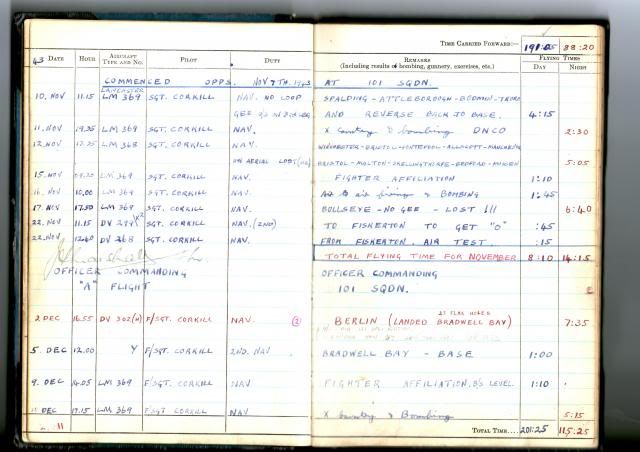 TIME CARRIED FORWARD:— 191:05 88:20
43 DATE HOUR AIRCRAFT TYPE AND NO. PILOT DUTY REMARKS (Including results of bombing, gunnery, exercises, etc.) FLYING TIMES DAY NIGHT
COMMENCED OPPS. NOV 7TH. 1943 AT 101 SQDN.
LANCASTER
10. NOV 11.15 LM 369 SGT. CORKILL NAV. NO LOOP SPALDING - ATTLEBOROUGH - BODMIN -
GEE AND REVERSE BACK TO BASE. 4:15
11. NOV 19.35 LM 369 SGT. CORKILL NAV. X & bombing DNCO 2:30
12. NOV LM 368 SGT. CORKILL NAV. WINCHESTER - BRISTOL - PONTEFOOL -
AERIAL LOST BRISTOL - MALTON - SKELLINGTHORPE - BEDFORD - 5:05
15. NOV LM 369 SGT. CORKILL NAV. FIGHTER AFFILIATION 1:10
16. NOV 10.00 LM 369 SGT. CORKILL NAV. air firing & BOMBING 1:45
17. NOV 17.50 LM 369 SGT. CORKILL NAV. BULLSEYE - NO GEE - LOST !!! 6:40
22. NOV 11.15 DV SGT. CORKILL NAV. (2ND) TO FISKERTON TO GET "O" :45
22. NOV 12.40 DV 268 SGT. CORKILL NAV. FROM FISKERTON. AIR TEST. :15
TOTAL FLYING TIME FOR NOVEMBER 8:10 14:15
OFFICER COMMANDING OFFICER COMMANDING
"A" FLIGHT 101 SQDN.
23 FLAK HOLES
2 DEC 16.55 DV 302(H) F/SGT. CORKILL NAV. (2) BERLIN (LANDED BRADWELL BAY) 7:35
5. DEC 12.00 Y F/SGT. CORKILL 2ND. NAV BRADWELL BAY - BASE 1:00
9. DEC 14.05 LM 369 F/SGT. CORKILL NAV FIGHTER AFFILIATION, B'S LEVEL 1:10
11 DEC 17.15 LM 369 F/SGT CORKILL NAV X & Bombing 5:15
TOTAL TIME.... 201:25 115:25